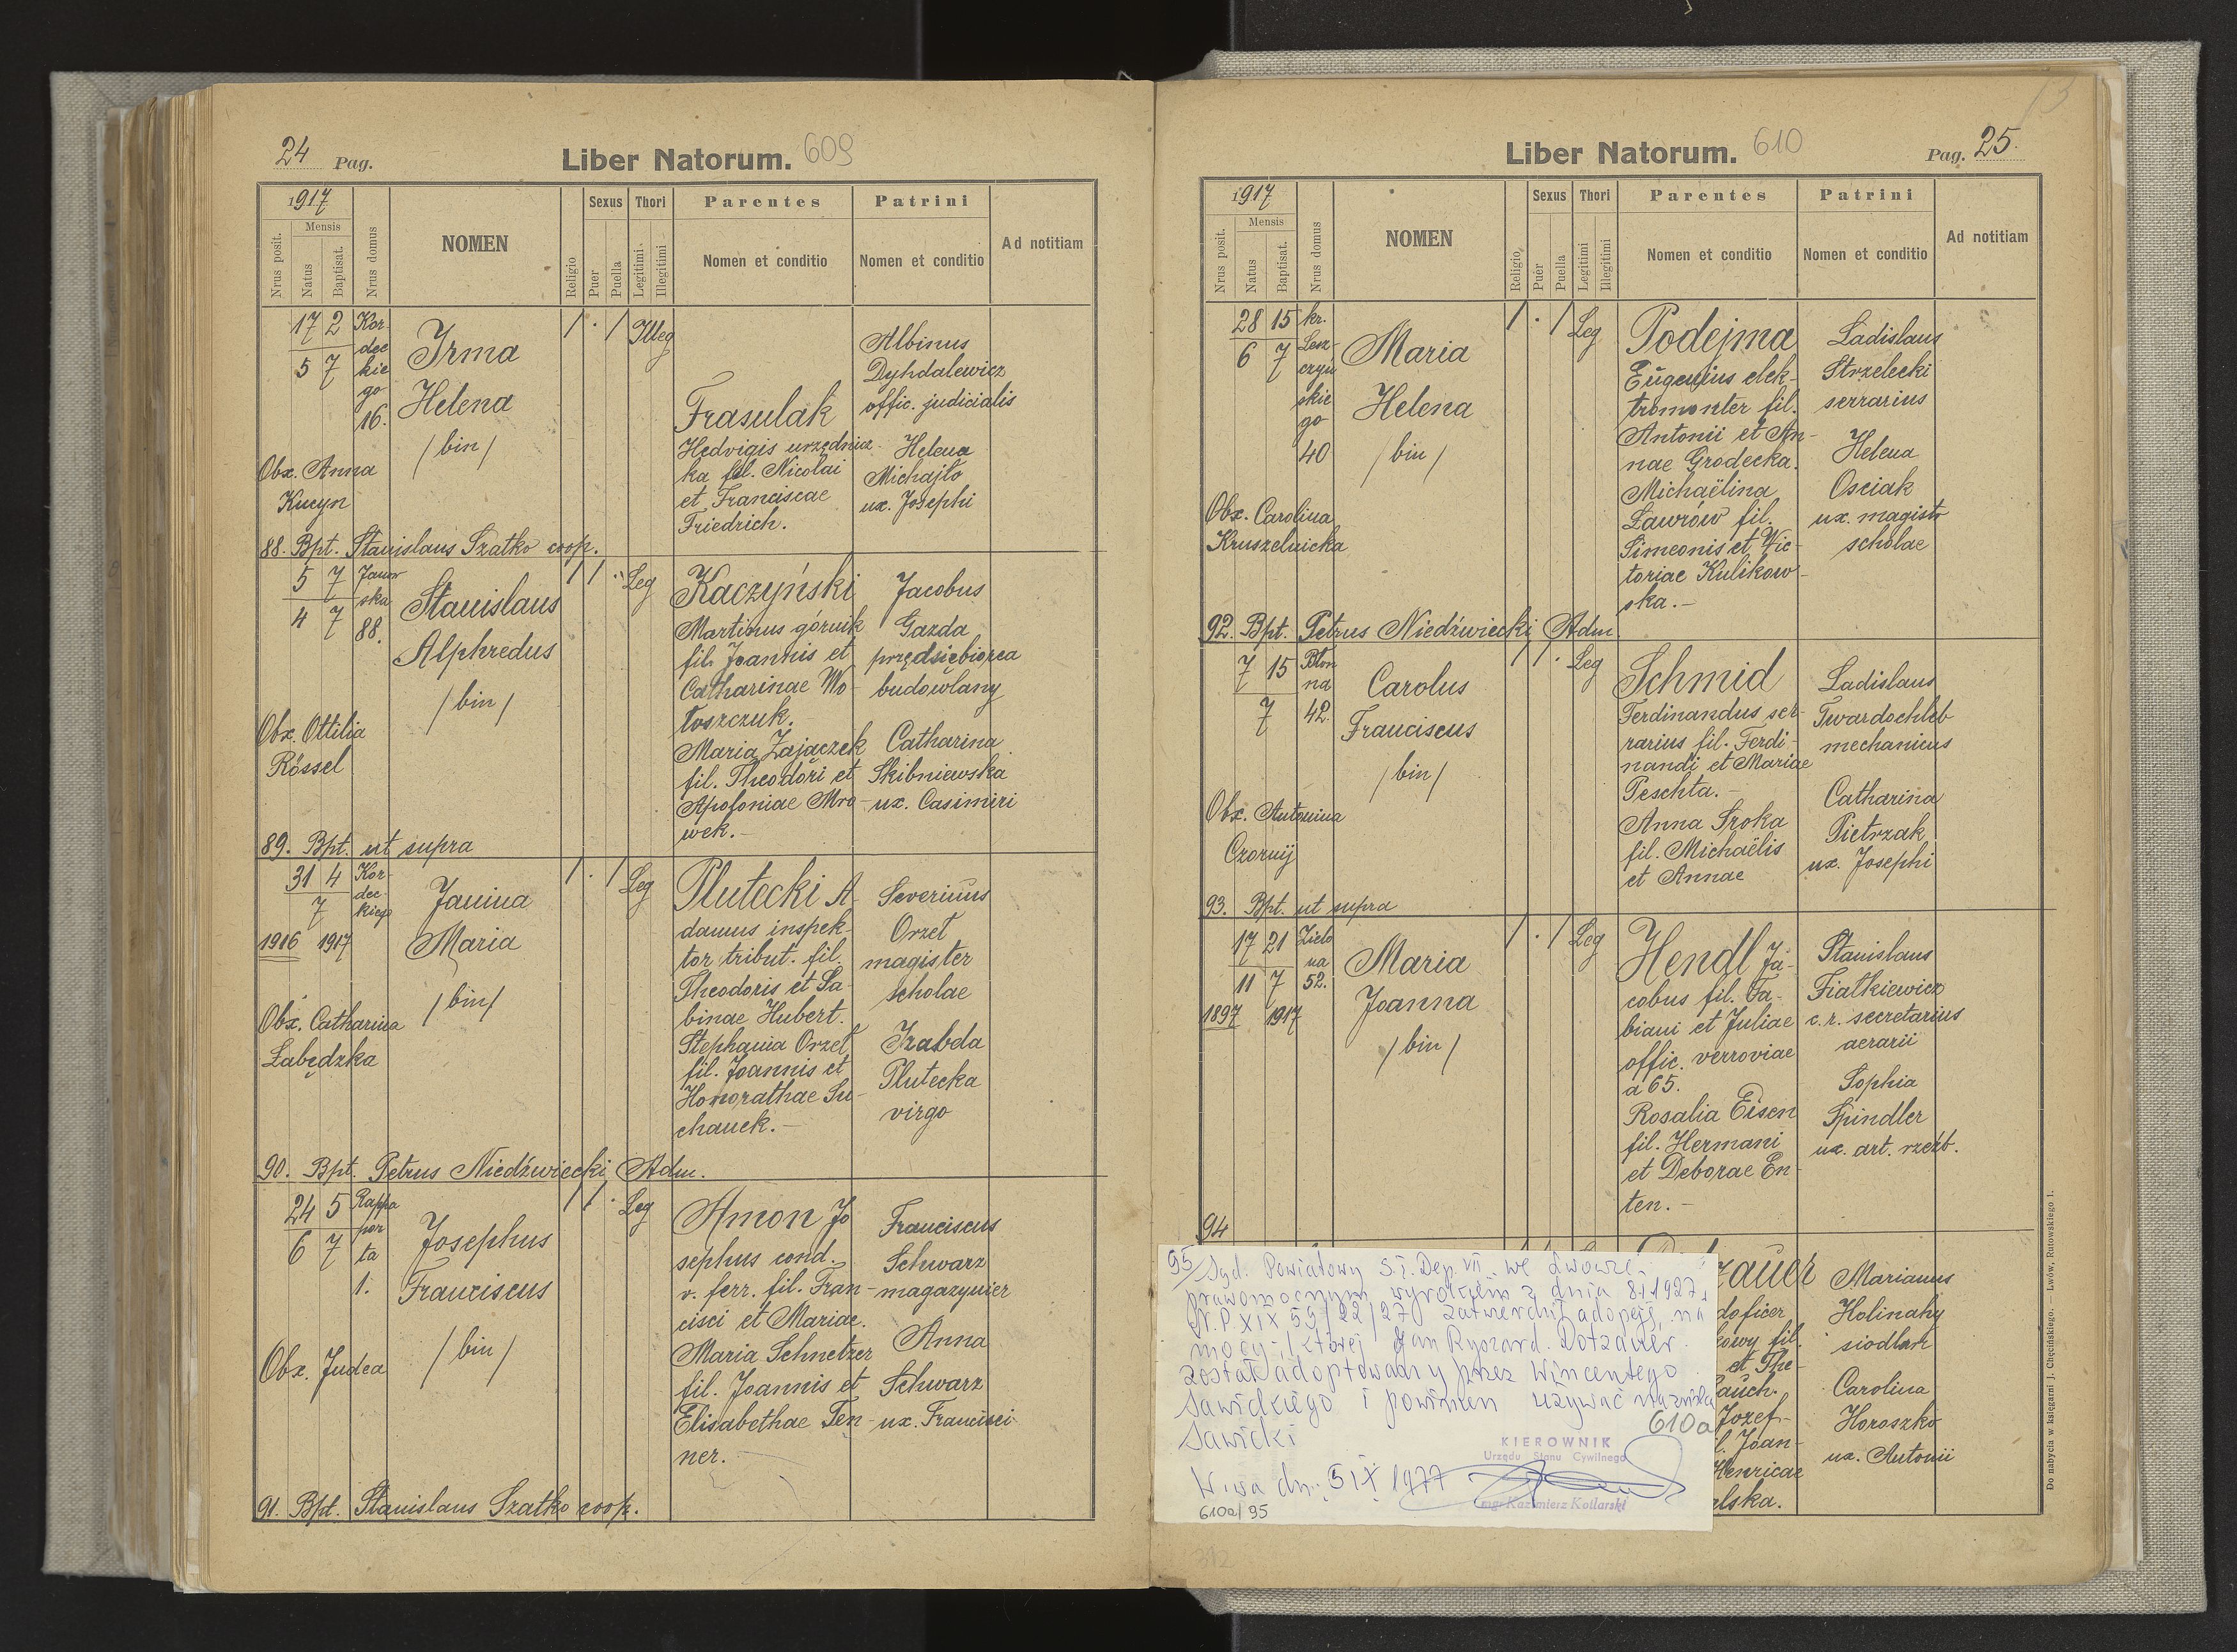 24 Pag.
Liber Natorum. 609
1917
Nrus posit.
Mensis
Natus
Baptisat.
Nrus domus
NOMEN
Religio
Sexus
Puer
Puella
Thori
Legitimi
Illegitimi
Parentes
Nomen et conditio
Patrini
Nomen et conditio
Ad notitiam
17 2
5 7
Kor-
dec
kie
go
16.
Irma
Helena
/bin/
Obx. Anna
Kucyn
1 · 1 Illeg
Frasulak
Hedvigis urzędnicz-
ka fil. Nicolai
et Franciscae
Friedrich.
Albinus
Dyhdalewicz
offic. judicialis
Helena
Michajło
ux. Josephi
88. Bpt. Stanislaus Szatko coop.
5 7
4 7
Janow
ska
88.
Stanislaus
Alphredus
/bin/
Obx. Ottilia
Rössel
1 1 · Leg
Kaczyński
Martinus górnik
fil. Joannis et
Catharinae Wo-
łoszczuk.
Maria Zajączek
fil. Theodori et
Apoloniae Mro-
wek.-
Jacobus
Gazda
przędsiębiorca
budowlany
Catharina
Skibniewska
ux. Casimiri
89. Bpt. ut supra
31 4
7
1916 1917
Kor-
dec-
kiego
Janina
Maria
/bin/
Obx. Catharina
Łabędzka
1 · 1 Leg
Plutecki A-
damus inspek-
tor tribut. fil.
Theodoris et Sa-
binae Hubert.
Stephania Orzeł
fil. Joannis et
Honorathae Su-
chanek.-
Severinus
Orzeł
magister
scholae
Izabela
Plutecka
virgo
90. Bpt. Petrus Niedźwiecki, Adm.
24 5
6 7
Rappa
por
ta
1.
Josephus
Franciscus
/bin/
Obx. Judea
1 1 · Leg
Amon Jo
sephus cond.
v. ferr. fil. Fran-
cisci et Mariae.
Maria Schnetzer
fil. Joannis et
Elisabethae Ten-
ner.
Franciscus
Schwarz
magazynier
Anna
Schwarz
ux. Francisci
91. Bpt. Stanislaus Szatko coop.
Liber Natorum. 610
Pag. 25.
1917
Nrus posit.
Mensis
Natus
Baptisat.
Nrus domus
NOMEN
Religio
Sexus
Puer
Puella
Thori
Legitimi
Illegitimi
Parentes
Nomen et conditio
Patrini
Nomen et conditio
Ad notitiam
28 15
6 7
kr.
Lesz-
czyń
skie
go
40
Maria
Helena
/bin/
Obx. Carolina
Kruszelnicka
1 · 1 Leg
Podejma
Eugenius elek-
tromonter fil.
Antonii et An-
nae Grodecka.
Michaëlina
Ławrów fil.
Simeonis et Wic-
toriae Kulikow-
ska.-
Ladislaus
Strzelecki
serrarius
Helena
Osciak
ux. magistr
scholae
92. Bpt. Petrus Niedźwiecki, Adm
7 15
7
Błon
na
42.
Carolus
Franciscus
/bin/
Obx. Antonina
Czornij
1 1 · Leg
Schmid
Ferdinandus ser-
rarius fil. Ferdi-
nandi et Mariae
Peschta.-
Anna Sroka
fil. Michaëlis
et Annae
Ladislaus
Twardochleb
mechanicus
Catharina
Pietrzak
ux. Josephi
93. Bpt. ut supra
17 21
11 7
1897 1917
Zielo
na
52.
Maria
Joanna
/bin/
1 · 1 Leg
Hendl Ja-
cobus fil. Fa-
biani et Juliae
offic. verroviae
a 65.
Rosalia Eisen
fil. Hermani
et Deborae En-
ten.-
Stanislaus
Fiałkiewicz
c.r. secretarius
aerarii
Sophia
Spindler
ux. art. rzeźb.
94
zauer
doficer
kowy fil.
et The-
auch.
Jozef-
l. Joan-
Henricae
lska.
Marianus
Holinaty
siodlarz
Carolina
Horoszko
ux. Antonii
95/ Sąd. Powiatowy S.I. Dep. VII. we Lwowie,
prawomocnym wyrokiem z dnia 8 I 1927,
Nr. P. XIX 59/22/27 zatwierdził adopcję, na
mocy której Jan Ryszard Dotzauer
został adoptowany przez Wincentego
Sawickiego i powinien używać nazwiska
Sawicki
610a
W-wa dn. 5 IX 1977
KIEROWNIK
Urzędu Stanu Cywilnego
mgr Kazimierz Kotlarski
610a/95
312
Do nabycia w księgarni J. Chęcińskiego. — Lwów, Rutowskiego 1.